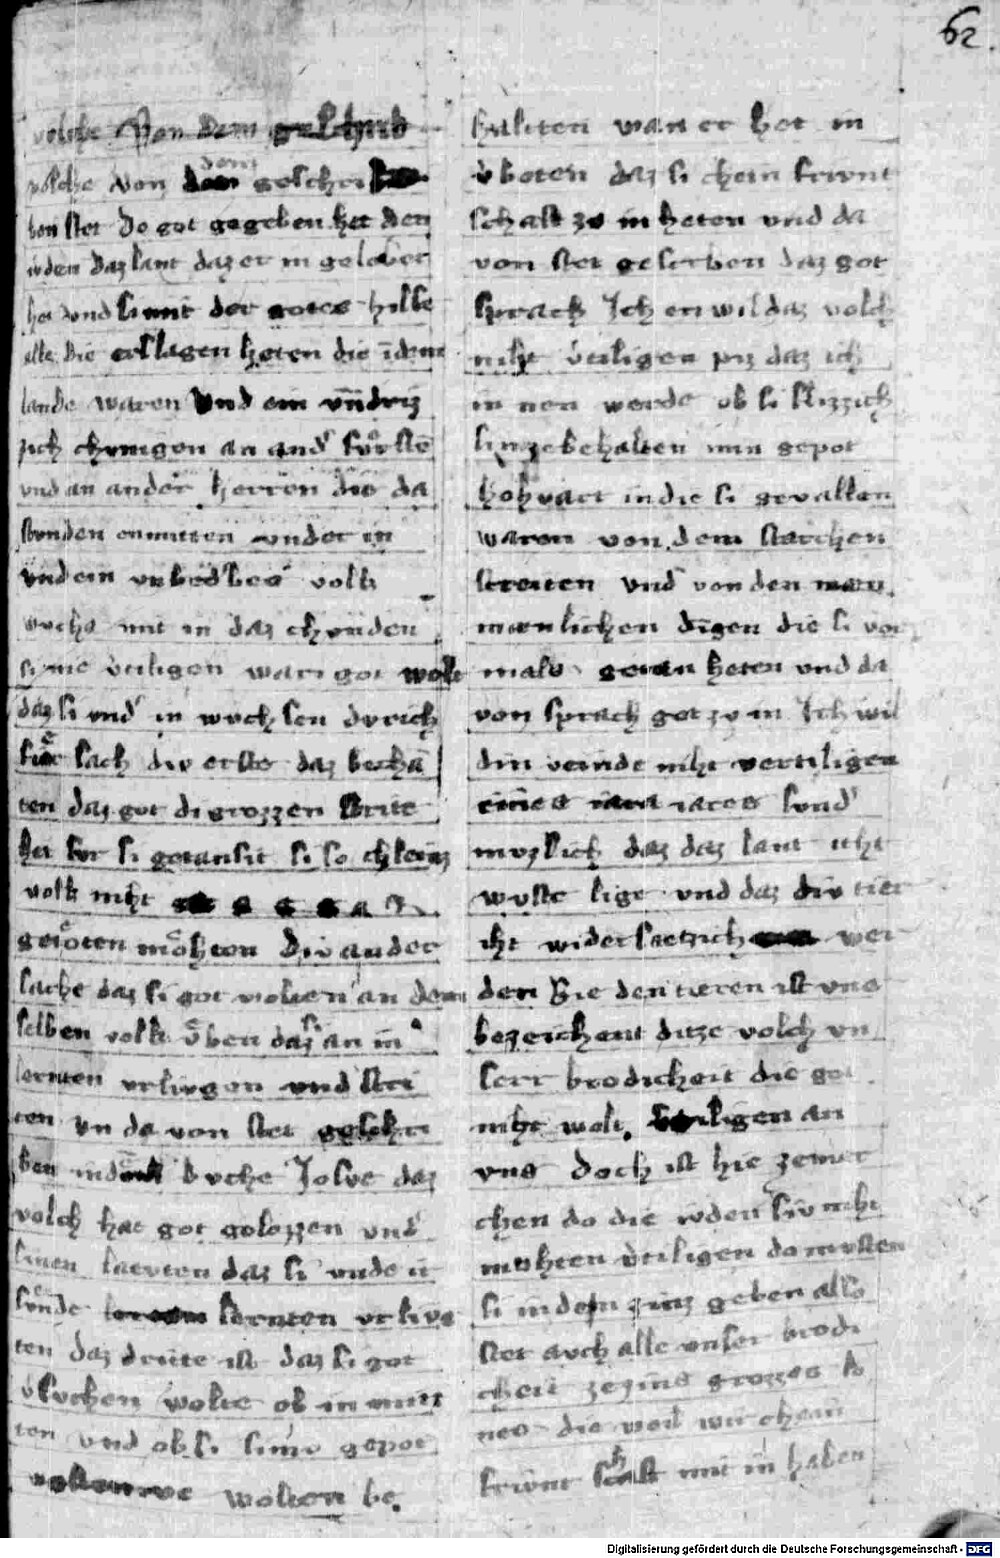 62.
volche Von Dem geschrib
volche von dem geschri
ben stet Do got gegeben het den
iuden Daz lant daz er in gelobet
het vnd si mit der gotes hilfe
alle die erslagen heten die in dem
lande waren Vnd ein vnd driz
zich chvnigen an and' fuerste
vnd an ander herren die da
stvnden enmitten vnder in
vnd ein volk
wchs mit in daz chvnden
si nie vtiligen wan got wolt
daz si vnd' in wchsen dvrich
fier sach div erste daz bechā
ten daz got di grozzen strite
het fvr si getan sit si so chleinz
volk niht
getoten mohten Div ander
sache daz si got wolten an dem
selben volk vben daz si an in
lernten vrlivgen vnd stri
ten vn da von stet geschri
ben in dem bvche Josve daz
volch hat got gelazzen vnd'
sinen laevten daz si vnde ir
svnde lernten vrlivg
ten daz dritte ist daz si got
v'svchen wolte ob in mit
ten vnd ob si siniv gepot
wolten be
halten wan er het in
v'boten daz si chein frivnt
schaft zv in heten vnd da
von stet gescriben daz got
sprach Ich en wil daz volch
niht v'tiligen piz daz ich
innen werde ob si flizzich
sin zebehalten min gepot
hohvart in die si gevallen
waren von dem starchen
streiten vnd von den
manlichen dingen die si vor
mals getan heten vnd da
von sprach got zv in Ich wil
din veinde niht vertiligen
eines iares svnd'
mvzlich daz daz lant iht
wste lige vnd daz div tier
iht wider setzich wer
den Bie den tieren ist vns
bezeichent ditze volch vn
serr brodicheit die got
niht wolt tiligen an
vns doch ist hie zemer
chen do die iuden siv niht
mohten v'tiligen do mvsten
si in dem zins geben also
stet avch alle vnser brodi
cheit ze eins grozzes lo
nes die weil wir chein
frivnt schaft mit in haben
Digitalisierung gefördert durch die Deutsche Forschungsgemeinschaft - DFG